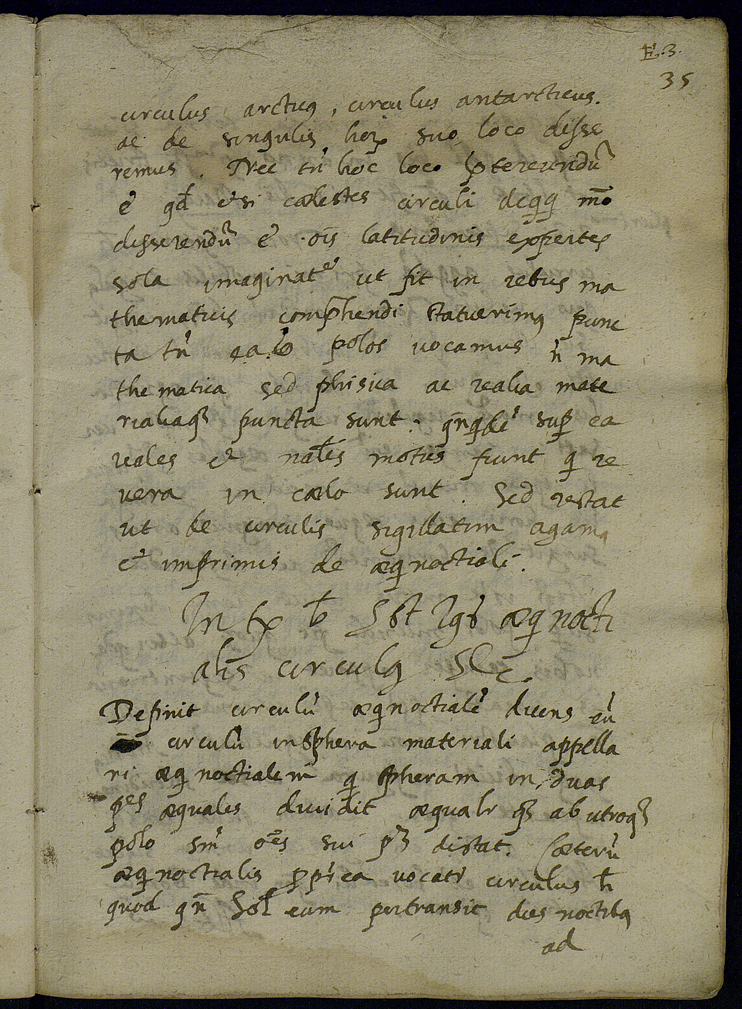 E. 3.
35
circulus arcticꝰ, circulus antarcticus.
ac de singulis hoꝝ suo loco disse
remus. Nec tñ hoc loco p̱tereundũ
ẽ qd̃ etsi cœlestes circuli de qꝗ mõ
disserendũ ẽ oĩs latitudinis expertes
sola imaginatẽ ut fit in rebus ma
thematicis comp̃hendi statuerimꝰ punc
ta tñ polos uocamus ñ ma
thematica sed phisica ac realia mate
rialiaqꝫ puncta sunt. qñqdẽ sup̱ ea
reales et nalẽs motus fiunt q re
uera in cœlo sunt. Sed restat
ut de circulis sigillatim agamꝰ
et imprimis de æqnoctiali.
In tx̃ Est Igr̃ æqnocti
alis circulꝰ &c.
Definit circulũ æqnoctialẽ dicens eũ
circulũ in Sphera materiali appella
ri æqnoctialem q spheram in duas
p̱tes æquales diuidit æqualr̃ qꝫ ab utroqꝫ
polo sm̃ oẽs sui p̱tes distat. Cæterũ
æqnoctialis p̱p̃rea uocatr̃ circulus h̃
quod qñ Sol eum pertransit dies noctibꝰ
ad